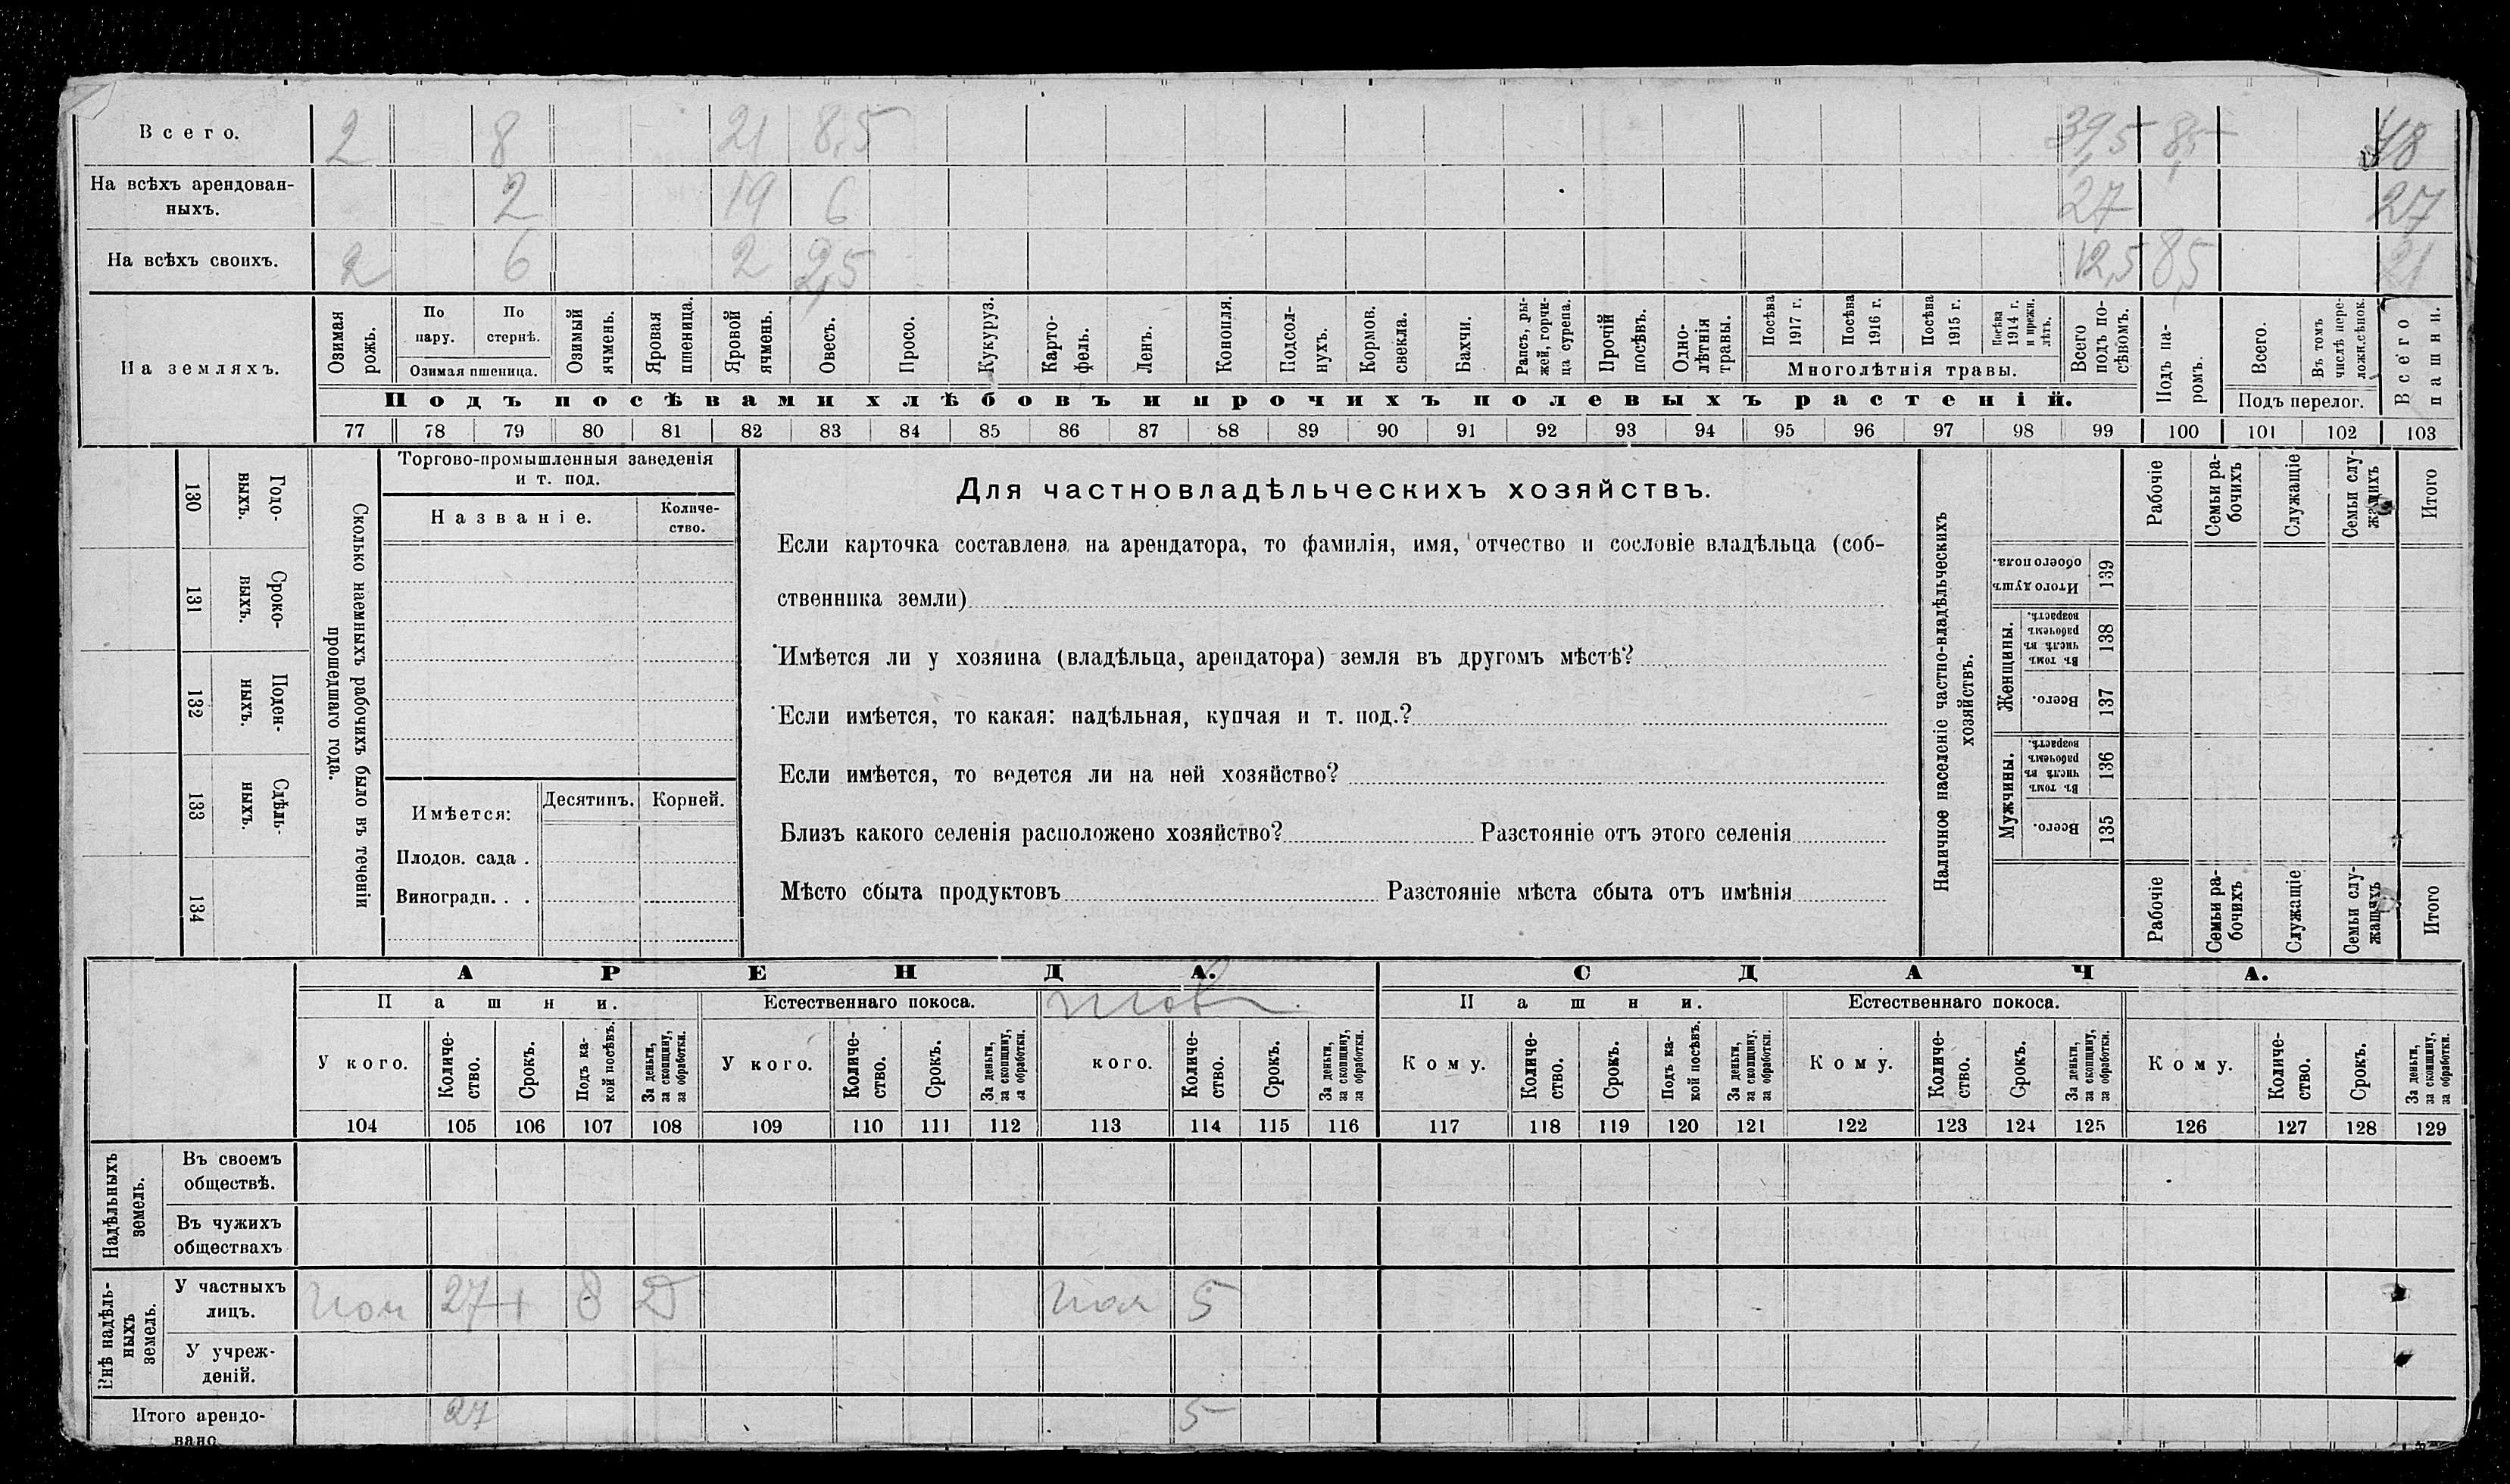 Всего. 2 8 21 8,5 39,5 8,5 48
На всѣхъ арендован-
ныхъ. 2 19 6 27 27
На всѣхъ своихъ. 2 6 2 2,5 12,5 8,5 21
На земляхъ.
Озимая рожь.
По пару.
По стернѣ.
Озимая пшеница.
Озимый ячмень.
Яровая пшеница.
Яровой ячмень.
Овесъ.
Просо.
Кукуруз.
Карто-
фель.
Ленъ.
Конопля.
Подсол-
нухъ.
Кормов. свекла.
Бахчи.
Рапсъ, ры-
жей, горчи-
ца сурепа.
Прочій посѣвъ.
Одно-
лѣтнія травы.
Посѣва 1917 г.
Посѣва 1916 г.
Посѣва 1915 г.
Посѣва 1914 г. и прежн. лѣтъ.
Многолѣтнія травы.
Всего подъ по-
сѣвомъ.
Подъ па-
ромъ.
Всего.
Въ томъ числѣ пере-
ложн.сѣнок.
Подъ перелог.
Всего пашни.
Подъ посѣвами хлѣбовъ и прочихъ полевыхъ растеній.
77 78 79 80 81 82 83 84 85 86 87 88 89 90 91 92 93 94 95 96 97 98 99 100 101 102 103
130 Годо-
выхъ.
131 Сроко-
выхъ.
132 Поден-
ныхъ.
133 Сдѣль-
ныхъ.
134
Сколько наемныхъ рабочихъ было въ теченіи
прошедшаго года.
Торгово-промышленныя заведенія
и т. под.
Названіе.
Количе-
ство.
Имѣется:
Десятинъ. Корней.
Плодов. сада .
Виноградн. . .
Для частновладѣльческихъ хозяйствъ.
Если карточка составлена на арендатора, то фамилія, имя, отчество и сословіе владѣльца (соб-
ственника земли)
Имѣется ли у хозяина (владѣльца, арендатора) земля въ другомъ мѣстѣ?
Если имѣется, то какая: надѣльная, купчая и т. под.?
Если имѣется, то ведется ли на ней хозяйство?
Близъ какого селенія расположено хозяйство? Разстояніе отъ этого селенія
Мѣсто сбыта продуктовъ Разстояніе мѣста сбыта отъ имѣнія
Наличное населеніе частно-владѣльческихъ
хозяйствъ.
Рабочіе
Семьи ра-
бочихъ
Служащіе
Семьи слу-
жащихъ
Итого
Итого душъ обоего пола. 139
Женщины.
Въ томъ числѣ въ рабочемъ возрастѣ. 138
Всего. 137
Мужчины.
Въ томъ числѣ въ рабочемъ возрастѣ. 136
Всего. 135
Рабочіе
Семьи ра-
бочихъ
Служащіе
Семьи слу-
жащихъ
Итого
АРЕНДА. СДАЧА.
Пашни. Естественнаго покоса. Пашни. Естественнаго покоса.
У кого.
Количе-
ство.
Срокъ.
Подъ ка-
кой посѣвъ.
За деньги,
за скопщину,
за обработки.
У кого.
Количе-
ство.
Срокъ.
За деньги,
за скопщину,
за обработки.
кого.
Количе-
ство.
Срокъ.
За деньги,
за скопщину,
за обработки.
Кому.
Количе-
ство.
Срокъ.
Подъ ка-
кой посѣвъ.
За деньги,
за скопщину,
за обработки.
Кому.
Количе-
ство.
Срокъ.
За деньги,
за скопщину,
за обработки.
Кому.
Количе-
ство.
Срокъ.
За деньги,
за скопщину,
за обработки.
104 105 106 107 108 109 110 111 112 113 114 115 116 117 118 119 120 121 122 123 124 125 126 127 128 129
Надѣльныхъ
земель.
Въ своемъ
обществѣ.
Въ чужихъ
обществахъ
Внѣ надѣль-
ныхъ
земель.
У частныхъ
лицъ. 27 5
У учреж-
деній.
Итого арендо-
вано 27 5